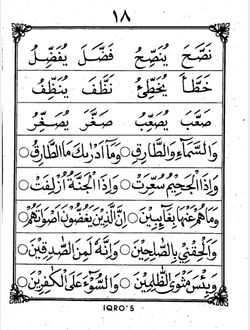 ١٨
نَصَّحَ يُنَصِّحُ فَضَّلَ يُفَضِّلُ
خَطَّأَ يُخَطِّئُ نَظَّفَ يُنَظِّفُ
صَعَّبَ يُصَعِّبُ صَغَّرَ يُصَغِّرُ
وَالسَّمَاءِ وَالطَّارِقِ ○ وَمَا أَدْرٰىكَ مَا الطَّارِقُ ○
وَإِذَا الْجَحِيْمُ سُعِّرَتْ ○ وَإِذَا الْجَنَّةُ أُزْلِفَتْ ○
وَمَاهُمْ عَنْهَا بِغَآئِبِيْنَ ○ إِنَّ الَّذِيْنَ يَغُضُّوْنَ أَصْوَاتَهُمْ ○
وَأَلْحِقْنِيْ بِالصّٰلِحِيْنَ ○ وَإِنَّهُ لَمِنَ الصّٰدِقِيْنَ ○
وَبِئْسَ مَثْوَى الظّٰلِمِيْنَ ○ وَالسُّوْٓءَ عَلَى الْكٰفِرِيْنَ ○
IQRO'5